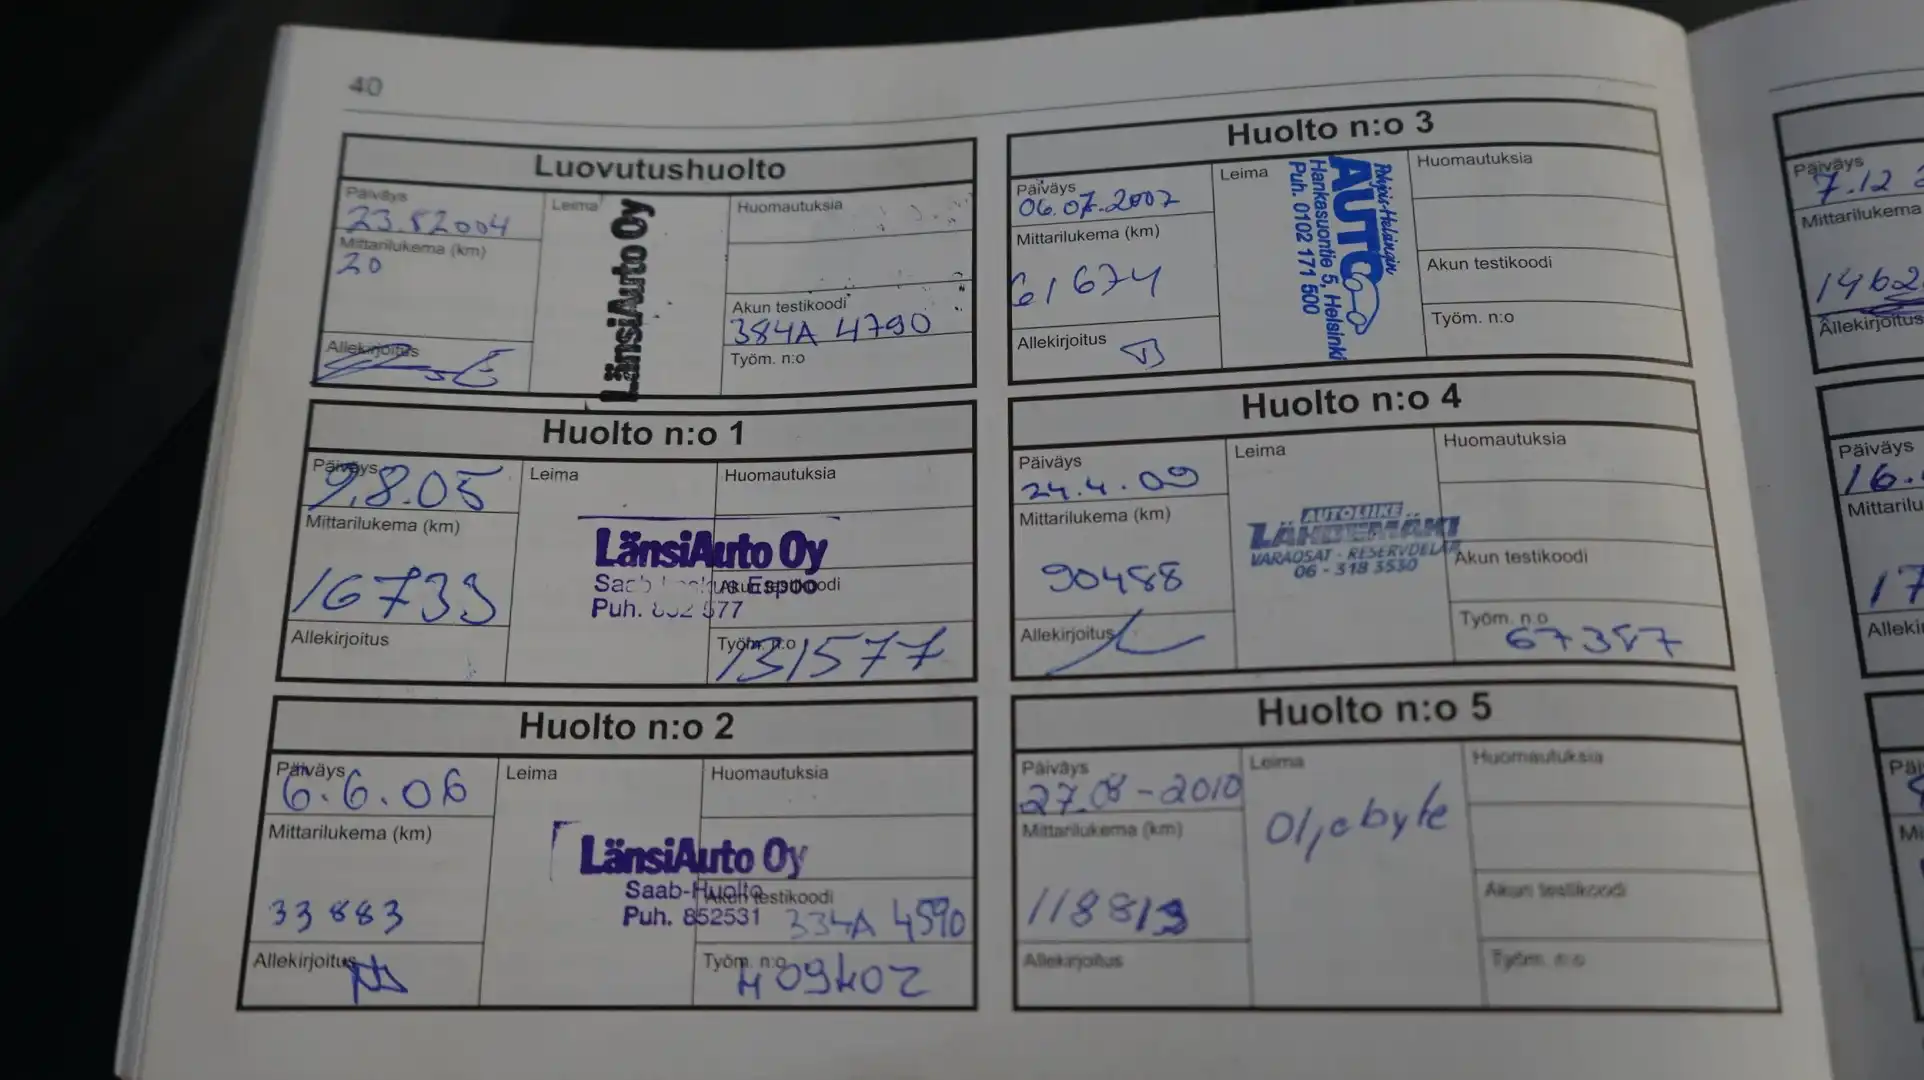 40
Luovutushuolto
Päiväys
23.82004
Mittarilukema (km)
20
Allekirjoitus
Leima
LänsiAuto Oy
Huomautuksia
Akun testikoodi
384A 4790
Työm. n:o
Huolto n:o 1
Päiväys
9.8.05
Mittarilukema (km)
16733
Allekirjoitus
Leima
LänsiAuto Oy
Espoo
Puh.
577
Huomautuksia
Akun testikoodi
Työm. n:o
131577
Huolto n:o 2
Päiväys
6.6.06
Mittarilukema (km)
33883
Allekirjoitus
Leima
LänsiAuto Oy
Saab-Huolto
Puh. 852531
Huomautuksia
Akun testikoodi
334A 4590
Työm. n:o
409402
Huolto n:o 3
Päiväys
06.07.2007
Mittarilukema (km)
61674
Allekirjoitus
Leima
Pohjois-Helsingin
AUTO
Hankasuontie 5, Helsinki
Puh. 0102 171 500
Huomautuksia
Akun testikoodi
Työm. n:o
Huolto n:o 4
Päiväys
24.4.09
Mittarilukema (km)
90488
Allekirjoitus
Leima
AUTOLIIKE
LÄHDEMÄKI
VARAOSAT - RESERVDELAR
06 - 318 3530
Huomautuksia
Akun testikoodi
Työm. n:o
67387
Huolto n:o 5
Päiväys
27.08-2010
Mittarilukema (km)
118813
Allekirjoitus
Leima
Oljebyte
Huomautuksia
Akun testikoodi
Työm. n:o
Päiväys
7.12
Mittarilukema
1462
Allekirjoitus
Päiväys
16.
Mittarilu
17
Alleki
Päi
Mi